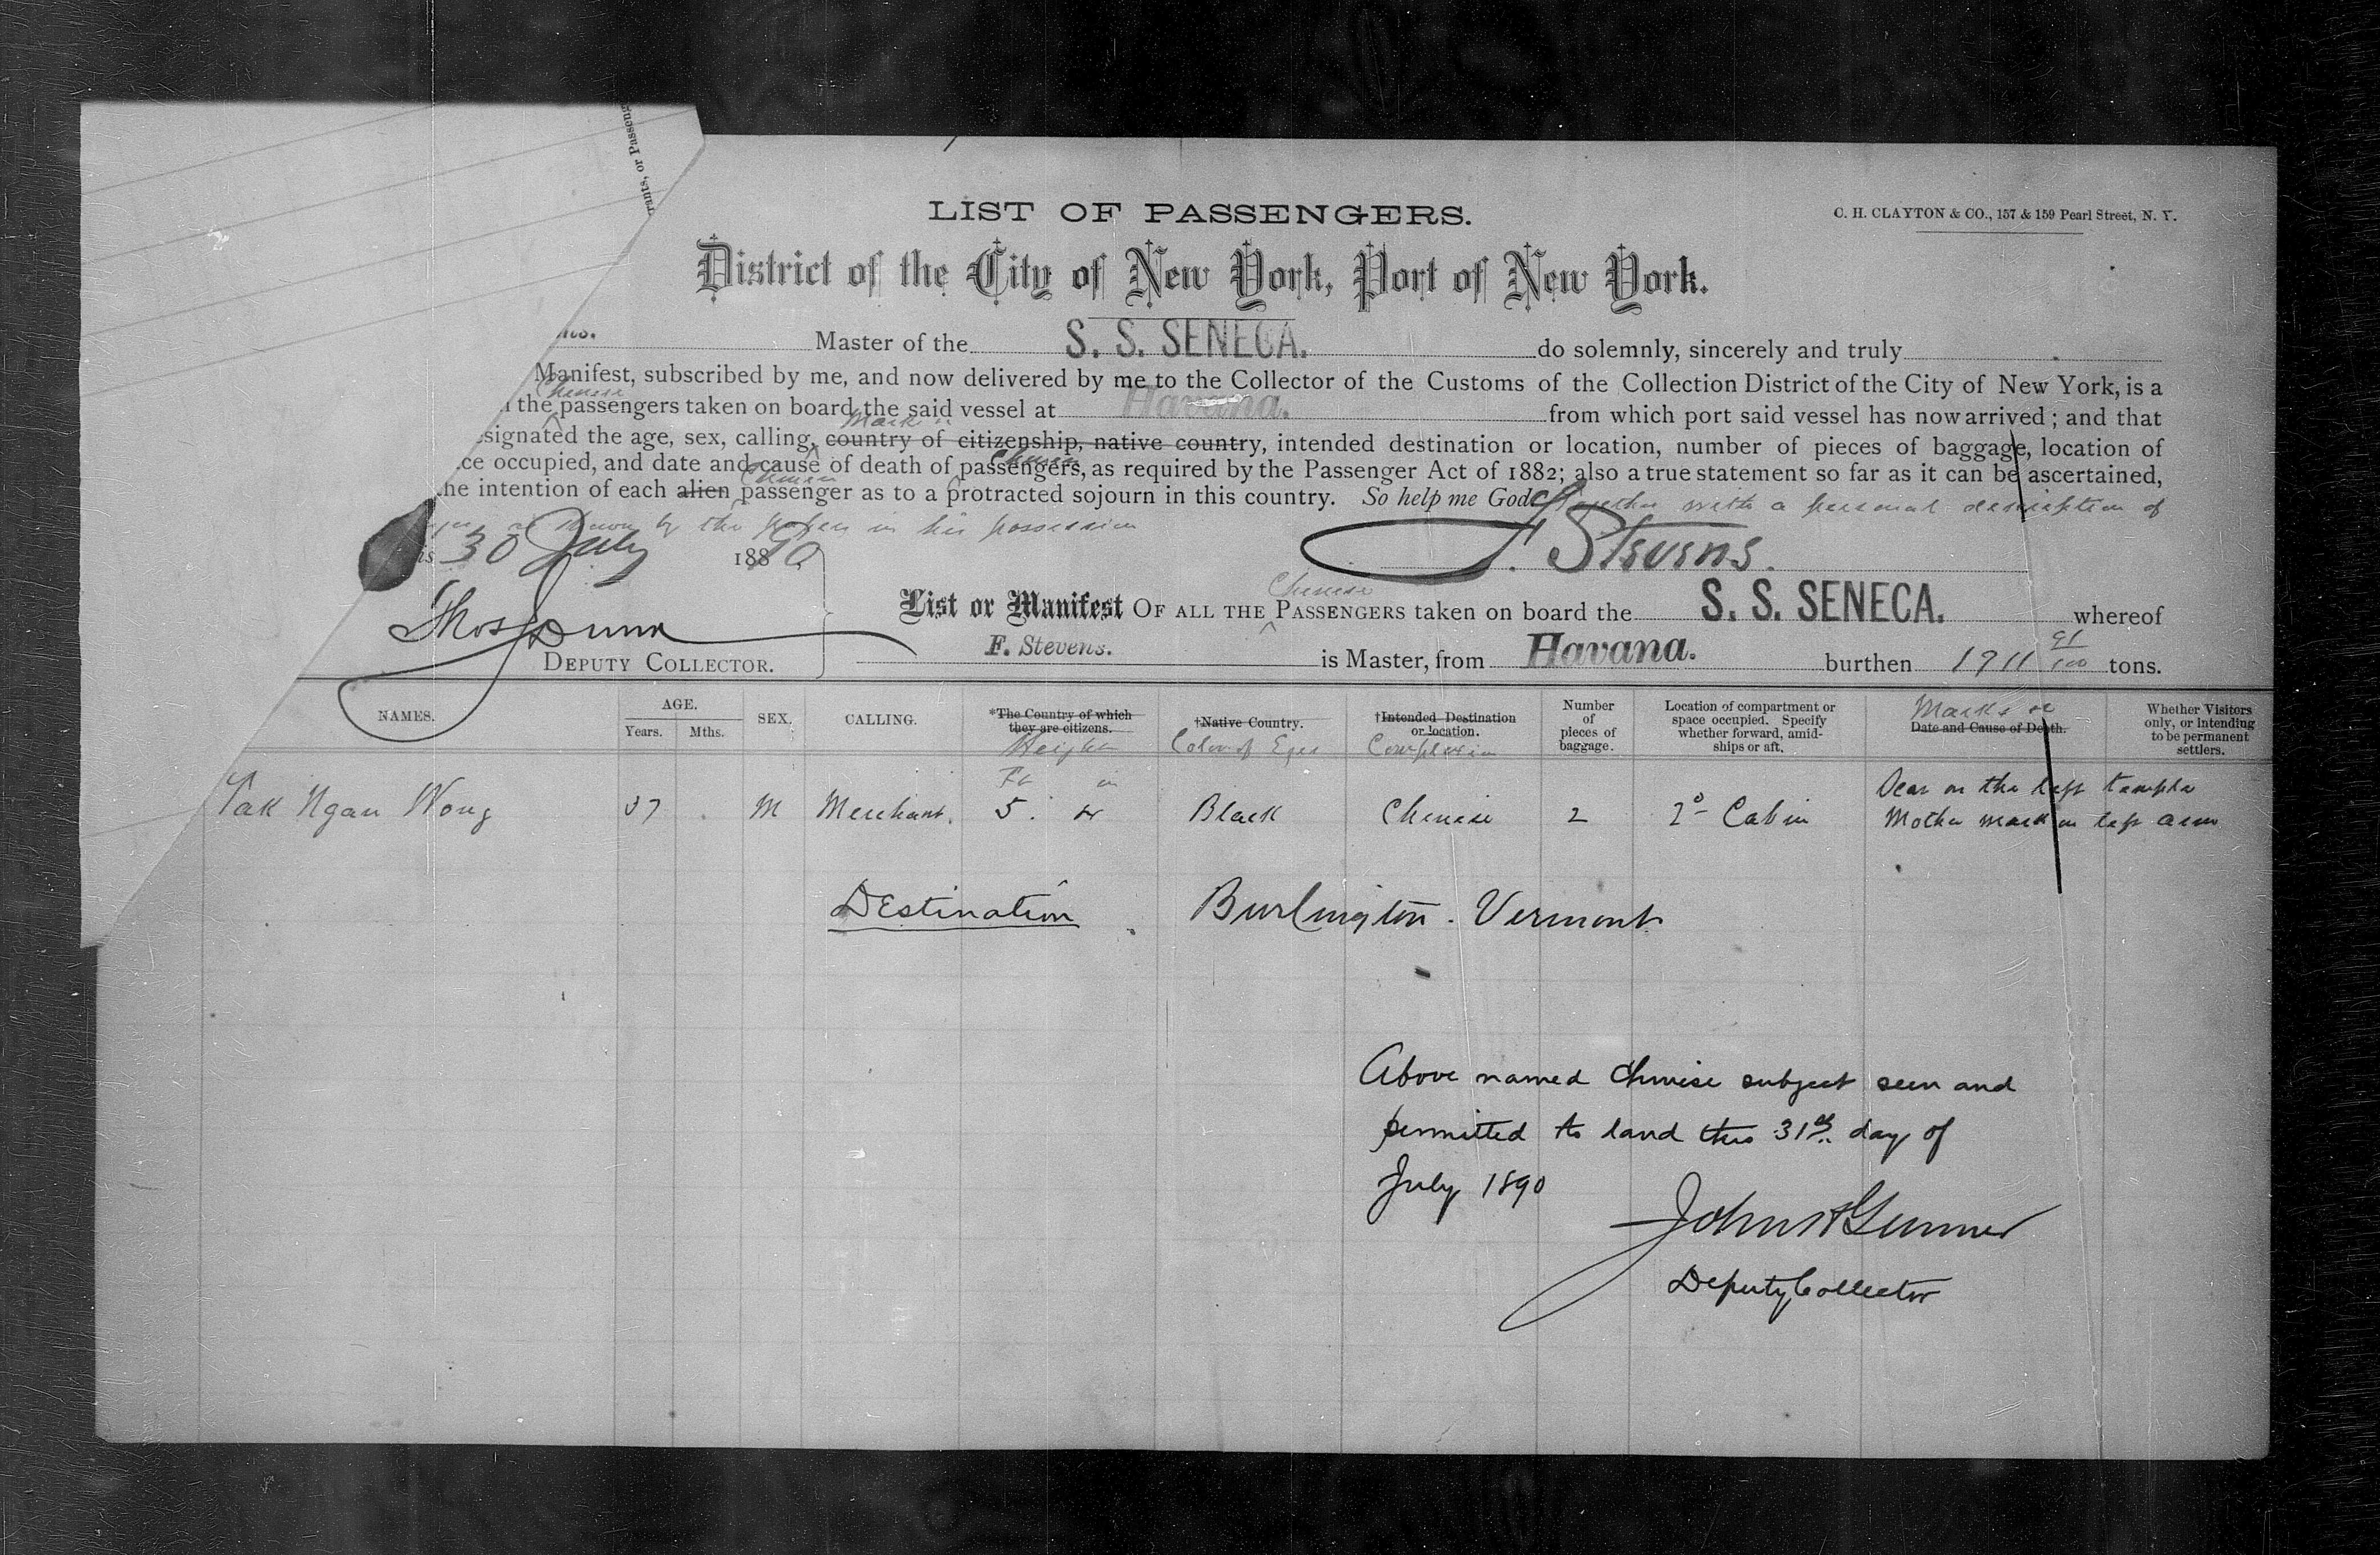 rants, or Passeng
LIST OF PASSENGERS.
C. H. CLAYTON & CO., 157 & 159 Pearl Street, N. Y.
District of the City of New York, Port of New York.
Master of the S. S. SENECA. do solemnly, sincerely and truly
Manifest, subscribed by me, and now delivered by me to the Collector of the Customs of the Collection District of the City of New York, is a
Chinese
the passengers taken on board the said vessel at Havana. from which port said vessel has now arrived; and that
Marks
signated the age, sex, calling, country of citizenship, native country, intended destination or location, number of pieces of baggage, location of
Chinese
ce occupied, and date and cause of death of passengers, as required by the Passenger Act of 1882; also a true statement so far as it can be ascertained,
Chinese
he intention of each alien passenger as to a protracted sojourn in this country. So help me God together with a personal description of
as shown by the papers in his possession
is 30 July 1890,
F. Stevens.
Chinese
List or Manifest OF ALL THE PASSENGERS taken on board the S. S. SENECA. whereof
Thos Dunn
DEPUTY COLLECTOR.
F. Stevens. is Master, from Havana. burthen 1911 91/100 tons.
NAMES. AGE. Years. Mths. SEX. CALLING. *The Country of which they are citizens. Height †Native Country. Color of Eyes †Intended Destination or location. Complexion Number of pieces of baggage. Location of compartment or space occupied. Specify whether forward, amidships or aft. Marks Date and Cause of Death. Whether Visitors only, or intending to be permanent settlers.
Ft in
Scar on the left temple
Yak Ngan Wong 37 M Merchant. 5. 4 Black Chinese 2 2º Cabin Mother mark on left arm
Destination Burlington. Vermont
Above named Chinese subject seen and
permitted to land this 31st day of
July 1890
Deputy Collector